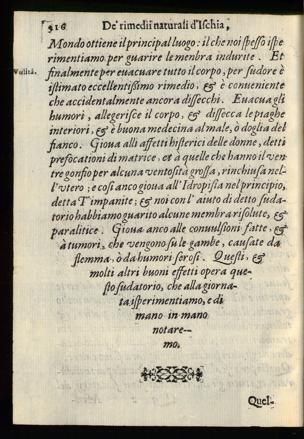 516 De' rimedii naturali d'Ischia,
Mondo ottiene il principal luogo: il che noi spesso ispe
rimentiamo per guarire le menbra indurite. Et
Vtilità.
finalmente per euacuare tutto il corpo, per sudore è
istimato eccellentissimo rimedio, & è conueniente
che accidentalmente ancora dissecchi. Euacua gli
humori, allegerisce il corpo, & dissecca le piaghe
interiori, & è buona medecina al male, ò doglia del
fianco. Gioua alli affetti histerici delle donne, detti
prefocationi di matrice, et à quelle che hanno il ven-
tre gonfio per alcuna ventosità grossa, rinchiusa nel-
l'vtero; e così anco gioua all'Idropisia nel principio,
detta Timpanite; & noi con l'aiuto di detto suda-
torio habbiamo guarito alcune membra risolute, &
paralitice. Gioua anco alle conuulsioni fatte, &
à tumori, che vengono su le gambe, causate da
flemma, ò da humori serosi. Questi, &
molti altri buoni effetti opera que-
sto sudatorio, che alla giorna-
ta isperimentiamo, e di
mano in mano
notare-
mo.
Quel-